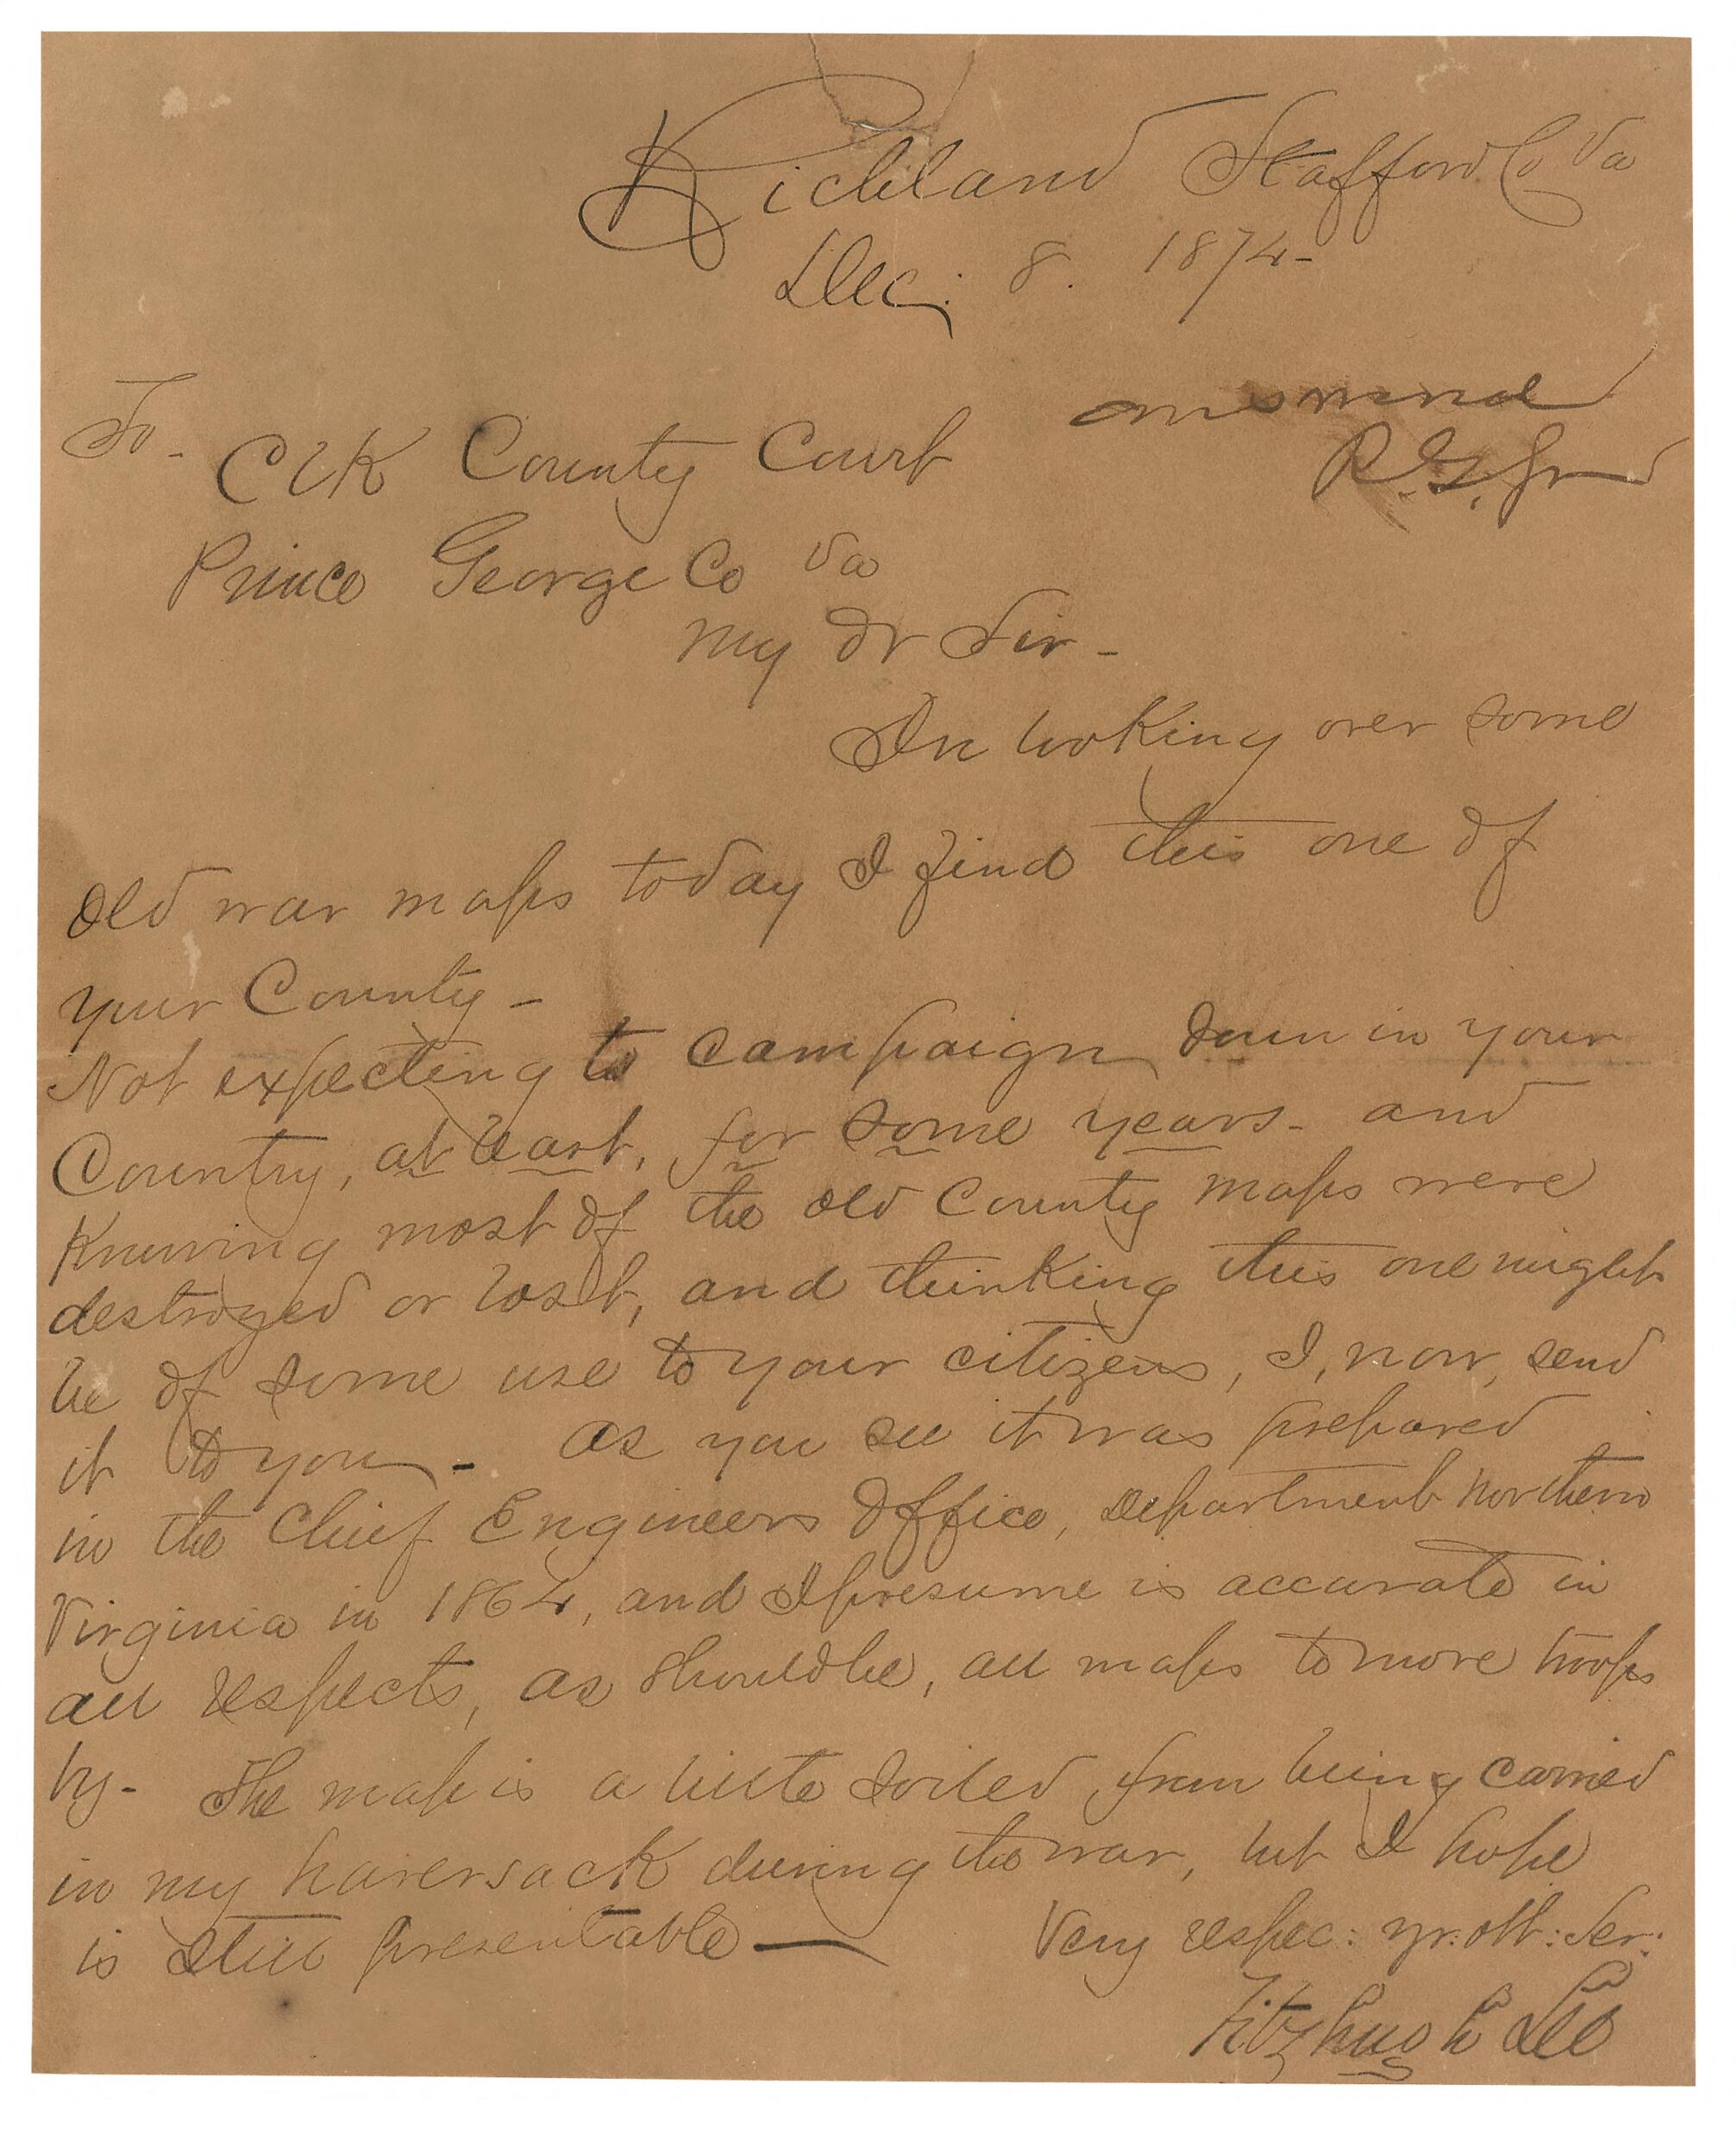 Richland Stafford Co Va
Dec: 8. 1874-
To-
Clk County Court
answered
R. G. Jr
Prince George Co Va
My dr Sir-
In looking over some
old war maps today I find this one of
your County-
Not expecting to campaign down in your
Country, at least, for some years- and
Knowing most of the old County maps were
destroyed or lost, and thinking this one might
be of some use to your citizens, I, now, send
it to you- As you see it was prepared
in the Chief Engineers Office, Department Northern
Virginia in 1864, and I presume is accurate in
all respects, as should be, all maps to move troops
by- The map is a little soiled from being carried
in my haversack during the war, but I hope
is still presentable—
Very respec: yr: obt: Ser:
Fitzhugh Lee